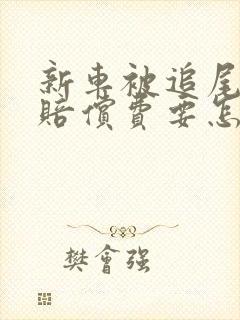 新車被追尾
賠償費要怎
樊會強